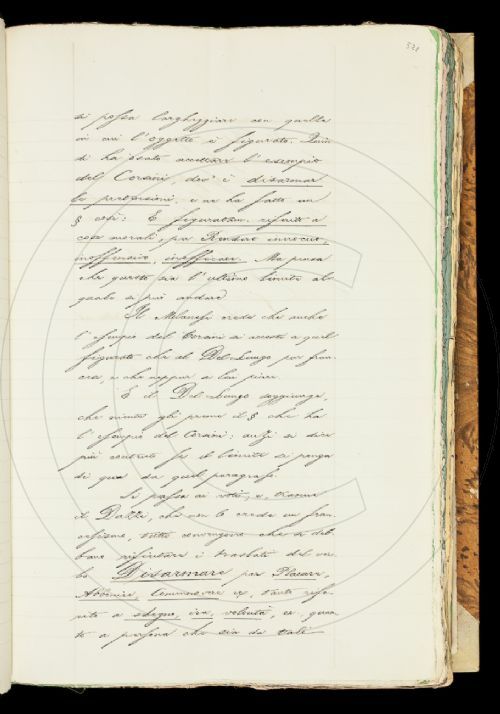 521
si possa largheggiare con quella
in cui l'oggetto è figurato. Quin
di ha dovuto accettare l'esempio
del Corsini, dov' è disarmar
le persone, e ne ha fatto un
§ così: E figuratam. riferito a
cose morali, per Rendere innocuo,
inoffensivo, inefficace. Ma pensa
che questo sia l'ultimo limite al
quale si può andare.
Il Milanesi crede che anche
l'esempio del Corsini si accosti a quel
figurato che il Del Lungo per fran
cese, e che neppur a lui piace.
E il Del Lungo soggiunge,
che niente gli preme il § che ha
l'esempio del Corsini: anzi si dice
più contento se il limite si ponga
di qua da quel paragrafo.
Si passa ai voti, e, tranne
il Dazzi, che non lo crede un fran
cesismo, tutti convengono che si deb
bano rifiutare i traslati del ver
bo Disarmare per Placare,
Ammansire, ec, tanto rife
rito a sdegno, ira, volontà, ec. quan
to a persona che sia da tali